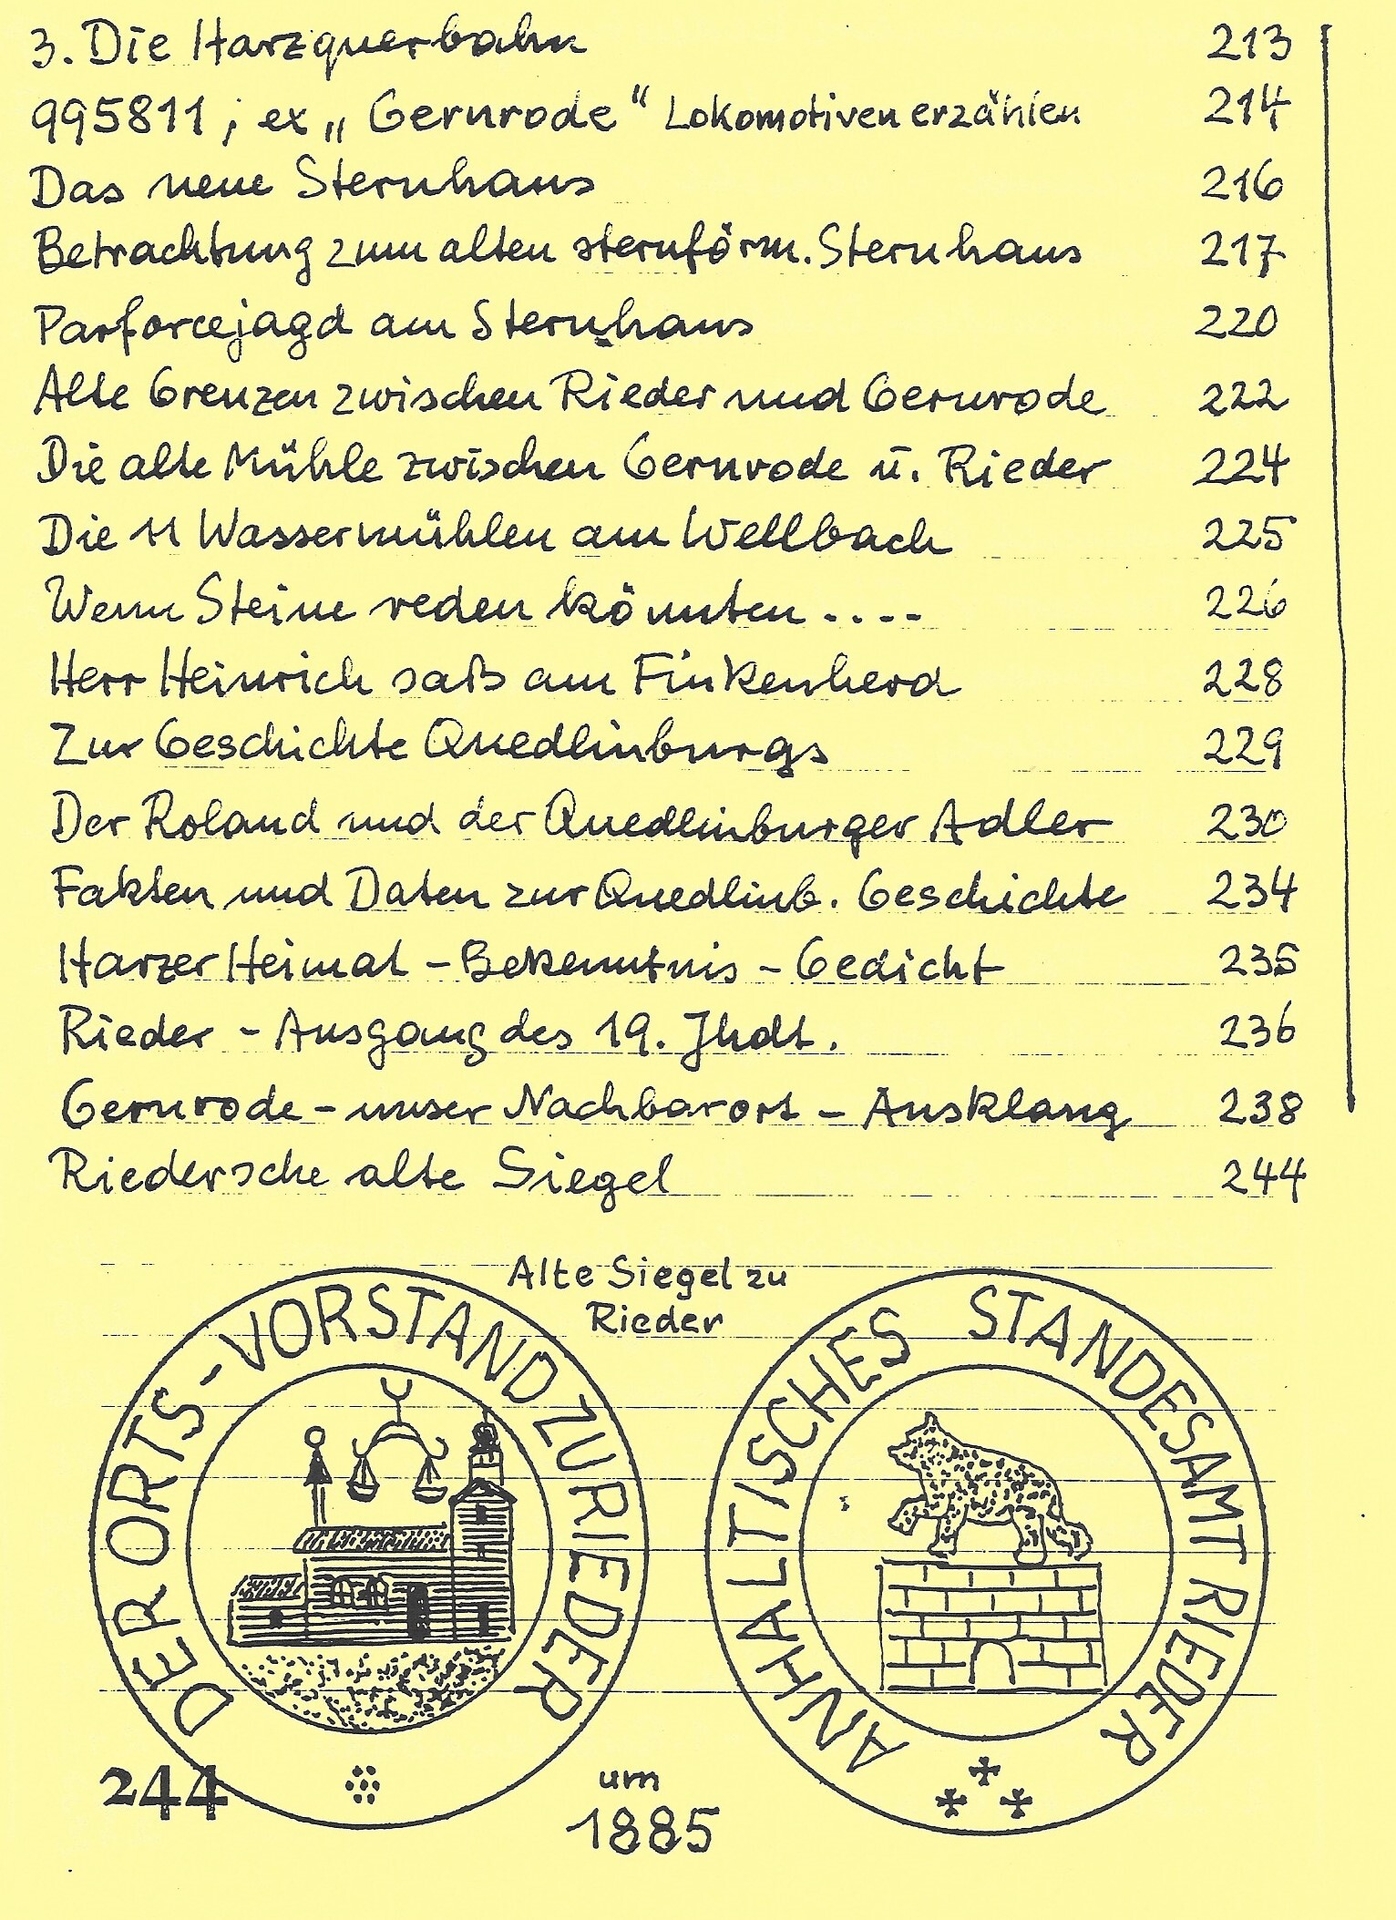 3. Die Harzquerbahn 213
995811 ; ex „ Gernrode “ Lokomotiven erzählen 214
Das neue Sternhaus 216
Betrachtung zum alten sternförm. Sternhaus 217
Parforcejagd am Sternhaus 220
Alte Grenzen zwischen Rieder und Gernrode 222
Die alte Mühle zwischen Gernrode u. Rieder 224
Die 11 Wassermühlen am Wellbach 225
Wenn Steine reden könnten .... 226
Herr Heinrich saß am Finkenherd 228
Zur Geschichte Quedlinburgs 229
Der Roland und der Quedlinburger Adler 230
Fakten und Daten zur Quedlinb. Geschichte 234
Harzer Heimat - Bekenntnis - Gedicht 235
Rieder - Ausgang des 19. Jhdt. 236
Gernrode - unser Nachbarort - Ausklang 238
Riedersche alte Siegel 244
Alte Siegel zu
Rieder
DER ORTS-VORSTAND ZU RIEDER
ANHALTISCHES STANDESAMT RIEDER
244
um
1885